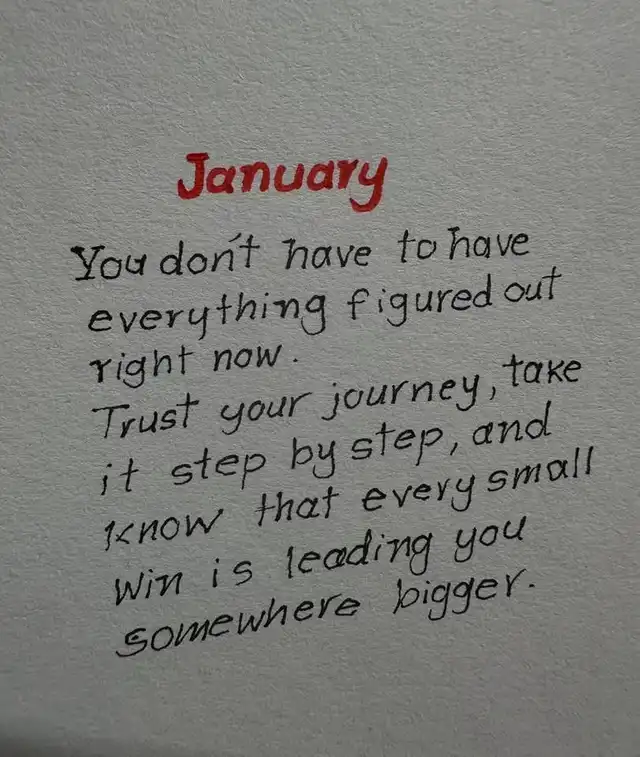 January
You don't have to have
everything figured out
right now.
Trust your journey, take
it step by step, and
know that every small
win is leading you
somewhere bigger.